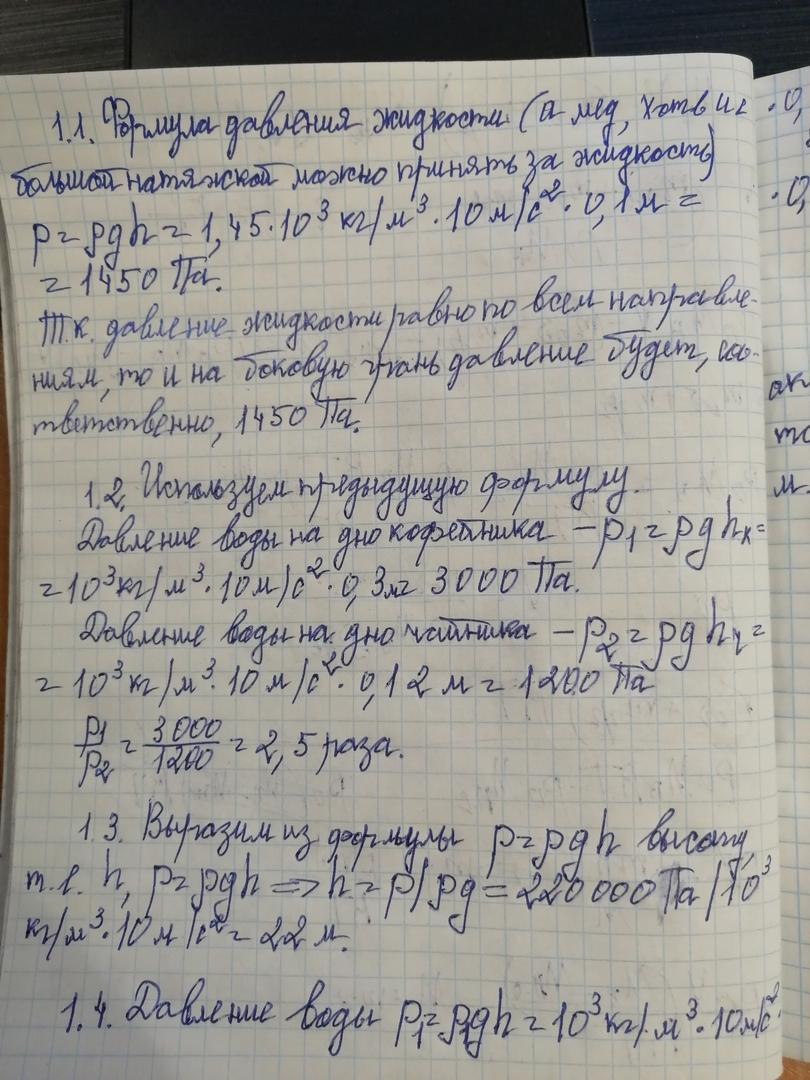 1.1. Формула давления жидкости (а мед, хоть и с
большой натяжкой можно принять за жидкость)
p = ρgh = 1,45·10³ кг/м³ · 10 м/с² · 0,1 м =
= 1450 Па.
Т.к. давление жидкости равно по всем направле-
ниям, то и на боковую грань давление будет, соо-
тветственно, 1450 Па.
1.2. Используем предыдущую формулу.
Давление воды на дно кофейника – p₁ = ρghₖ =
= 10³ кг/м³ · 10 м/с² · 0,3 м = 3000 Па.
Давление воды на дно чайника – p₂ = ρghч =
= 10³ кг/м³ · 10 м/с² · 0,12 м = 1200 Па
p₁/p₂ = 3000/1200 = 2,5 раза.
1.3. Выразим из формулы p = ρgh высоту,
т.е. h, p = ρgh => h = p/ρg = 220 000 Па / 10³
кг/м³ · 10 м/с² = 22 м.
1.4. Давление воды p₁ = ρ₁gh = 10³ кг/м³ · 10 м/с² ·
· 0,
· 0,
м.